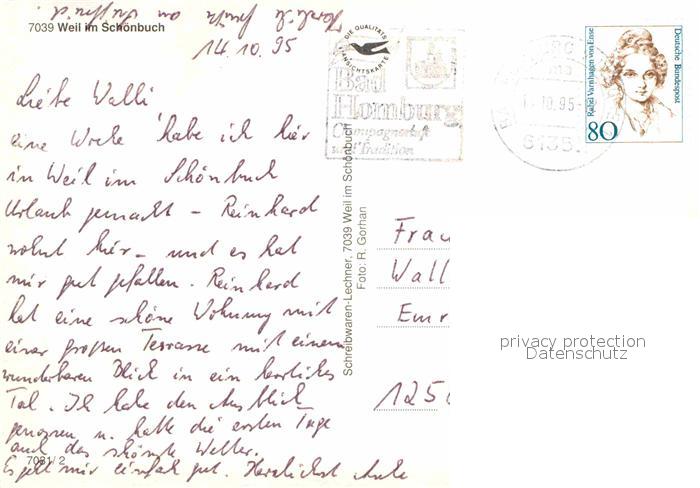 7039 Weil im Schönbuch
14.10.95
Liebe Walli
eine Woche habe ich hier
in Weil im Schönbuch
Urlaub gemacht – Reinhard
wohnt hier – und es hat
mir gut gefallen. Reinhard
hat eine schöne Wohnung mit
einer großen Terrasse mit einem
wunderbaren Blick in ein herrliches
Tal. Ich habe den Ausblick
genossen u. hatte die ersten Tage
auch das schönste Wetter.
Es geht mir einfach gut. Herzlichst
7031/2
DIE QUALITÄTS
ANSICHTSKARTE
Bad
Homburg
Champagnerluft
und Tradition
10.95
6135
Deutsche Bundespost
Rahel Varnhagen von Ense
80
Schreibwaren-Lechner, 7039 Weil im Schönbuch
Foto: R. Gorhan
Frau
Wall
Emr
1250
privacy protection
Datenschutz